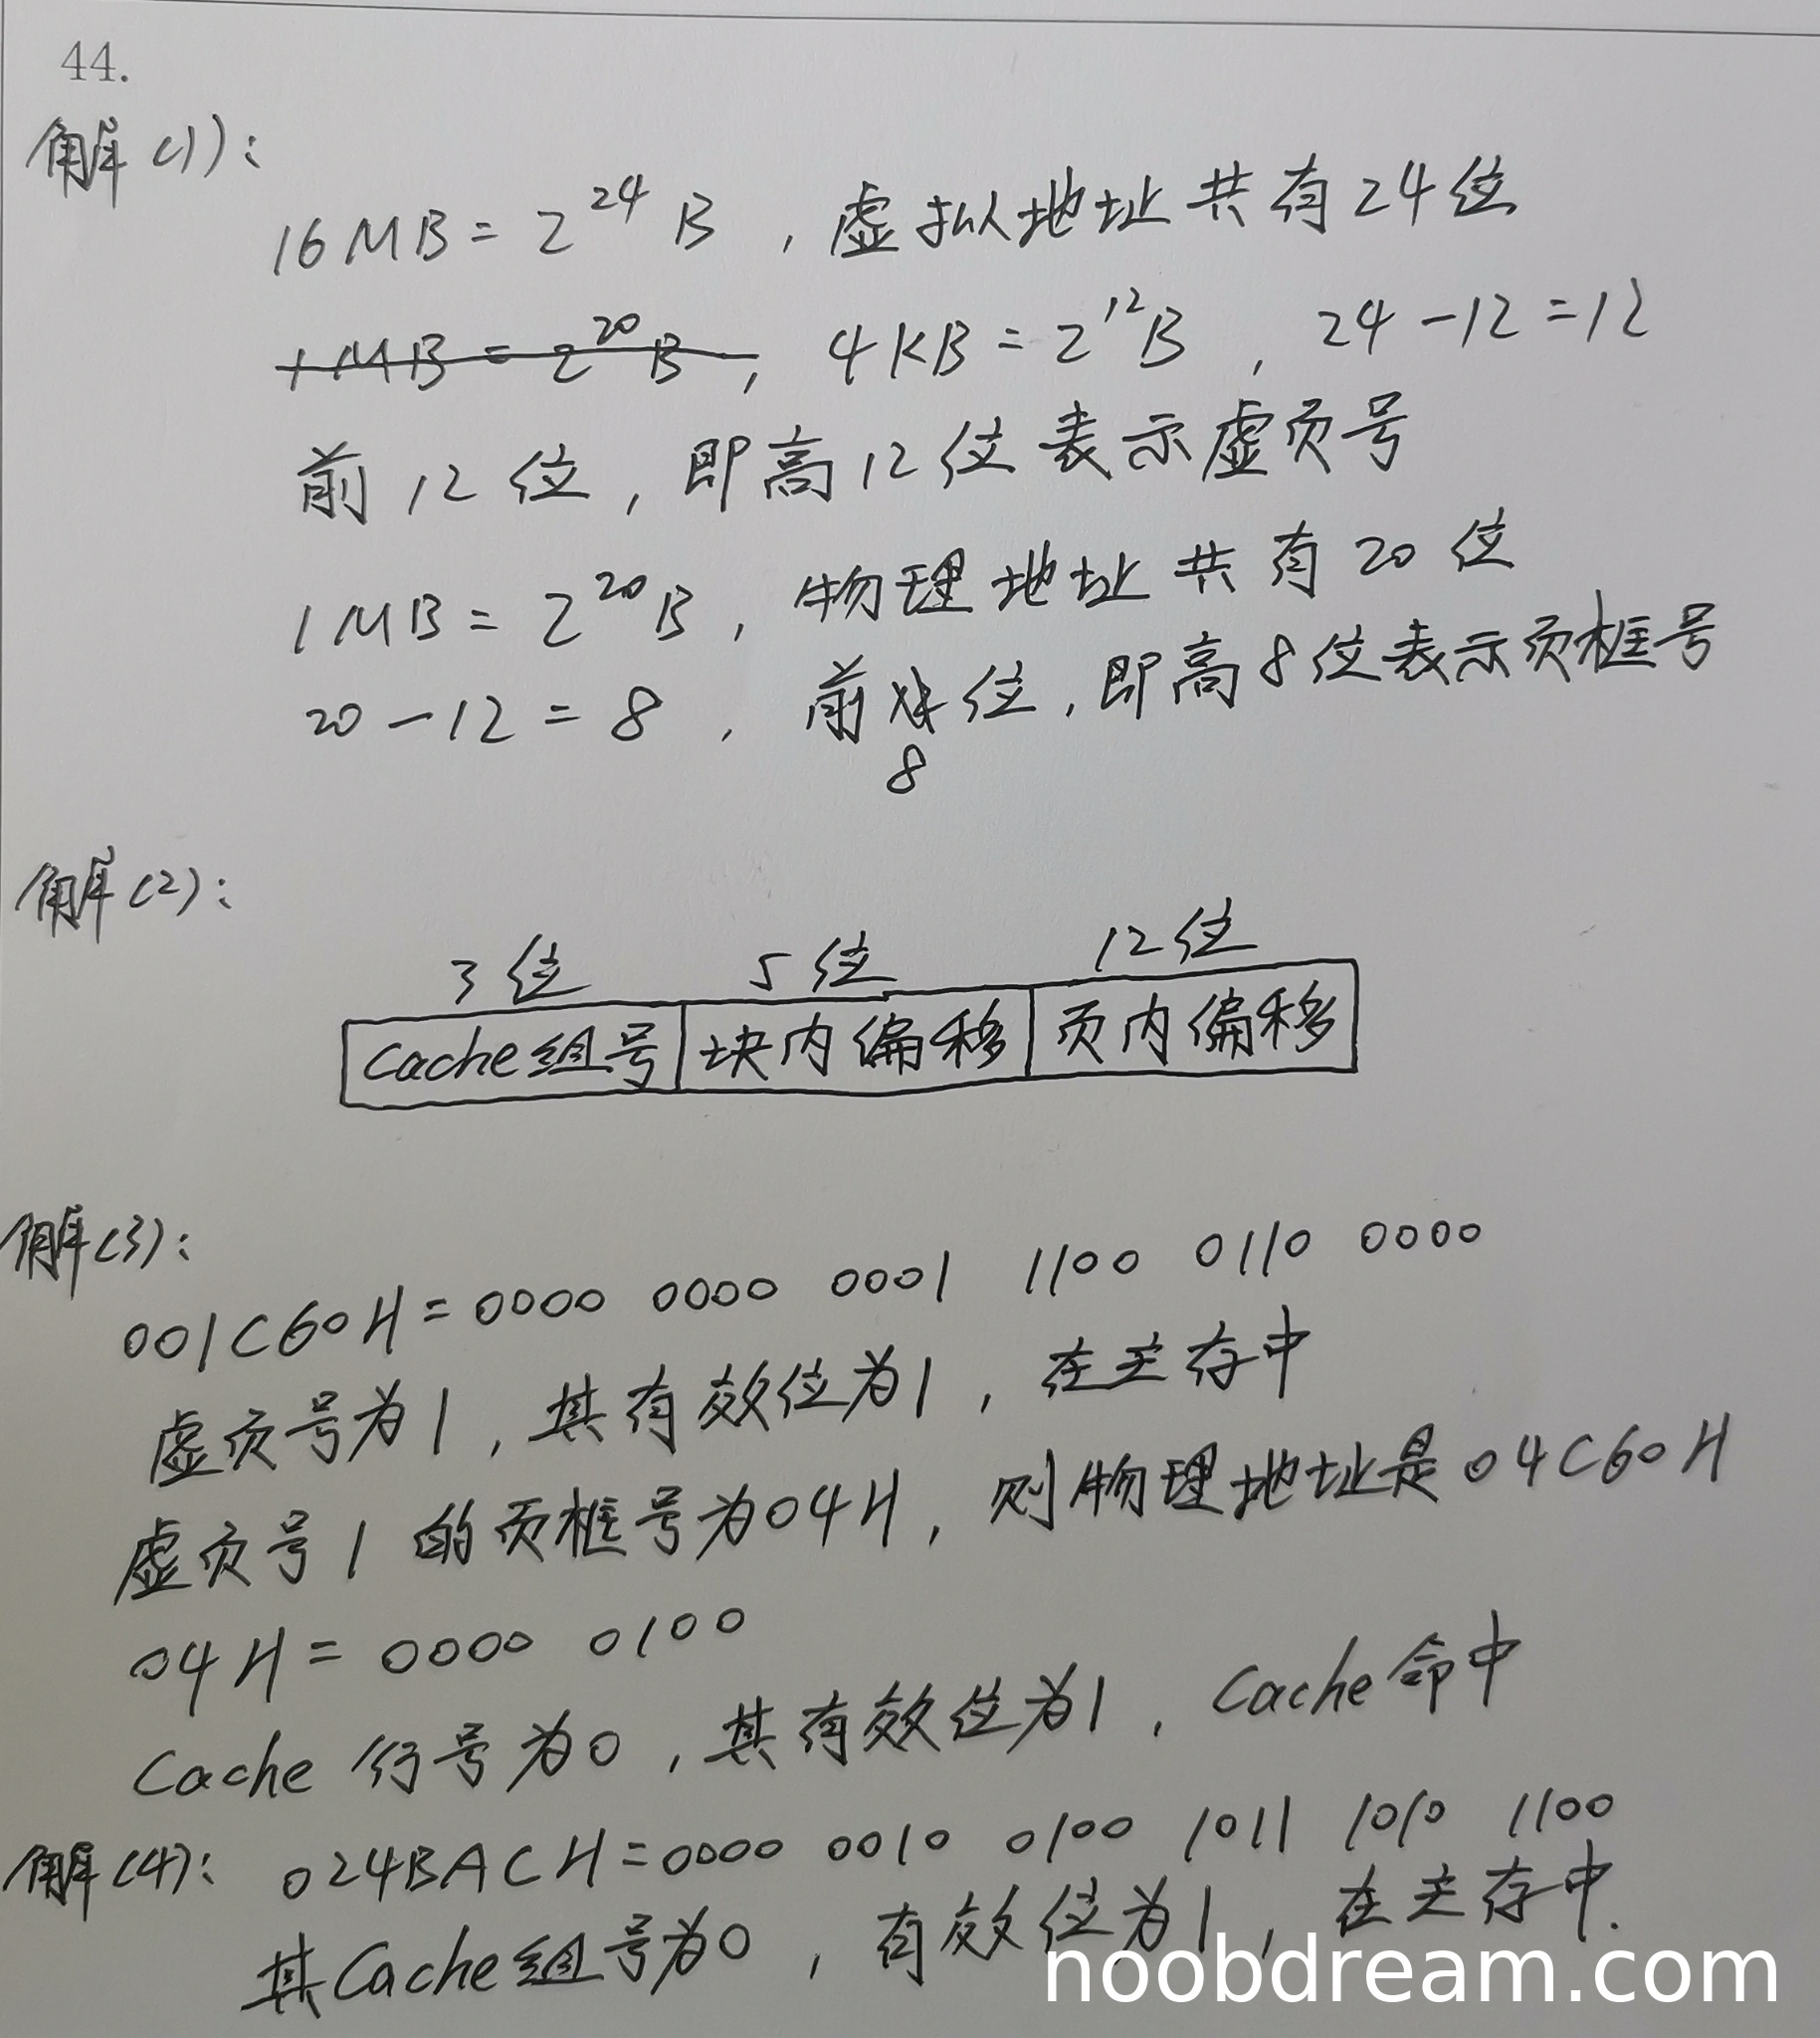 44.
解(1):
16MB = 2^24 B , 虚拟地址共有24位
1MB = 2^20 B , 4KB = 2^12 B , 24-12=12
前12位, 即高12位表示虚页号
1MB = 2^20 B , 物理地址共有20位
20-12 = 8 , 前位, 即高8位表示页框号
8
解(2):
3位 5位 12位
Cache组号 块内偏移 页内偏移
解(3):
001C60H = 0000 0000 0001 1100 0110 0000
虚页号为1, 其有效位为1, 在主存中
虚页号1的页框号为04H, 则物理地址是04C60H
04H = 0000 0100
Cache行号为0, 其有效位为1, Cache命中
解(4): 024BACH = 0000 0010 0100 1011 1010 1100
其Cache组号为0, 有效位为1, 在主存中.
noobdream.com